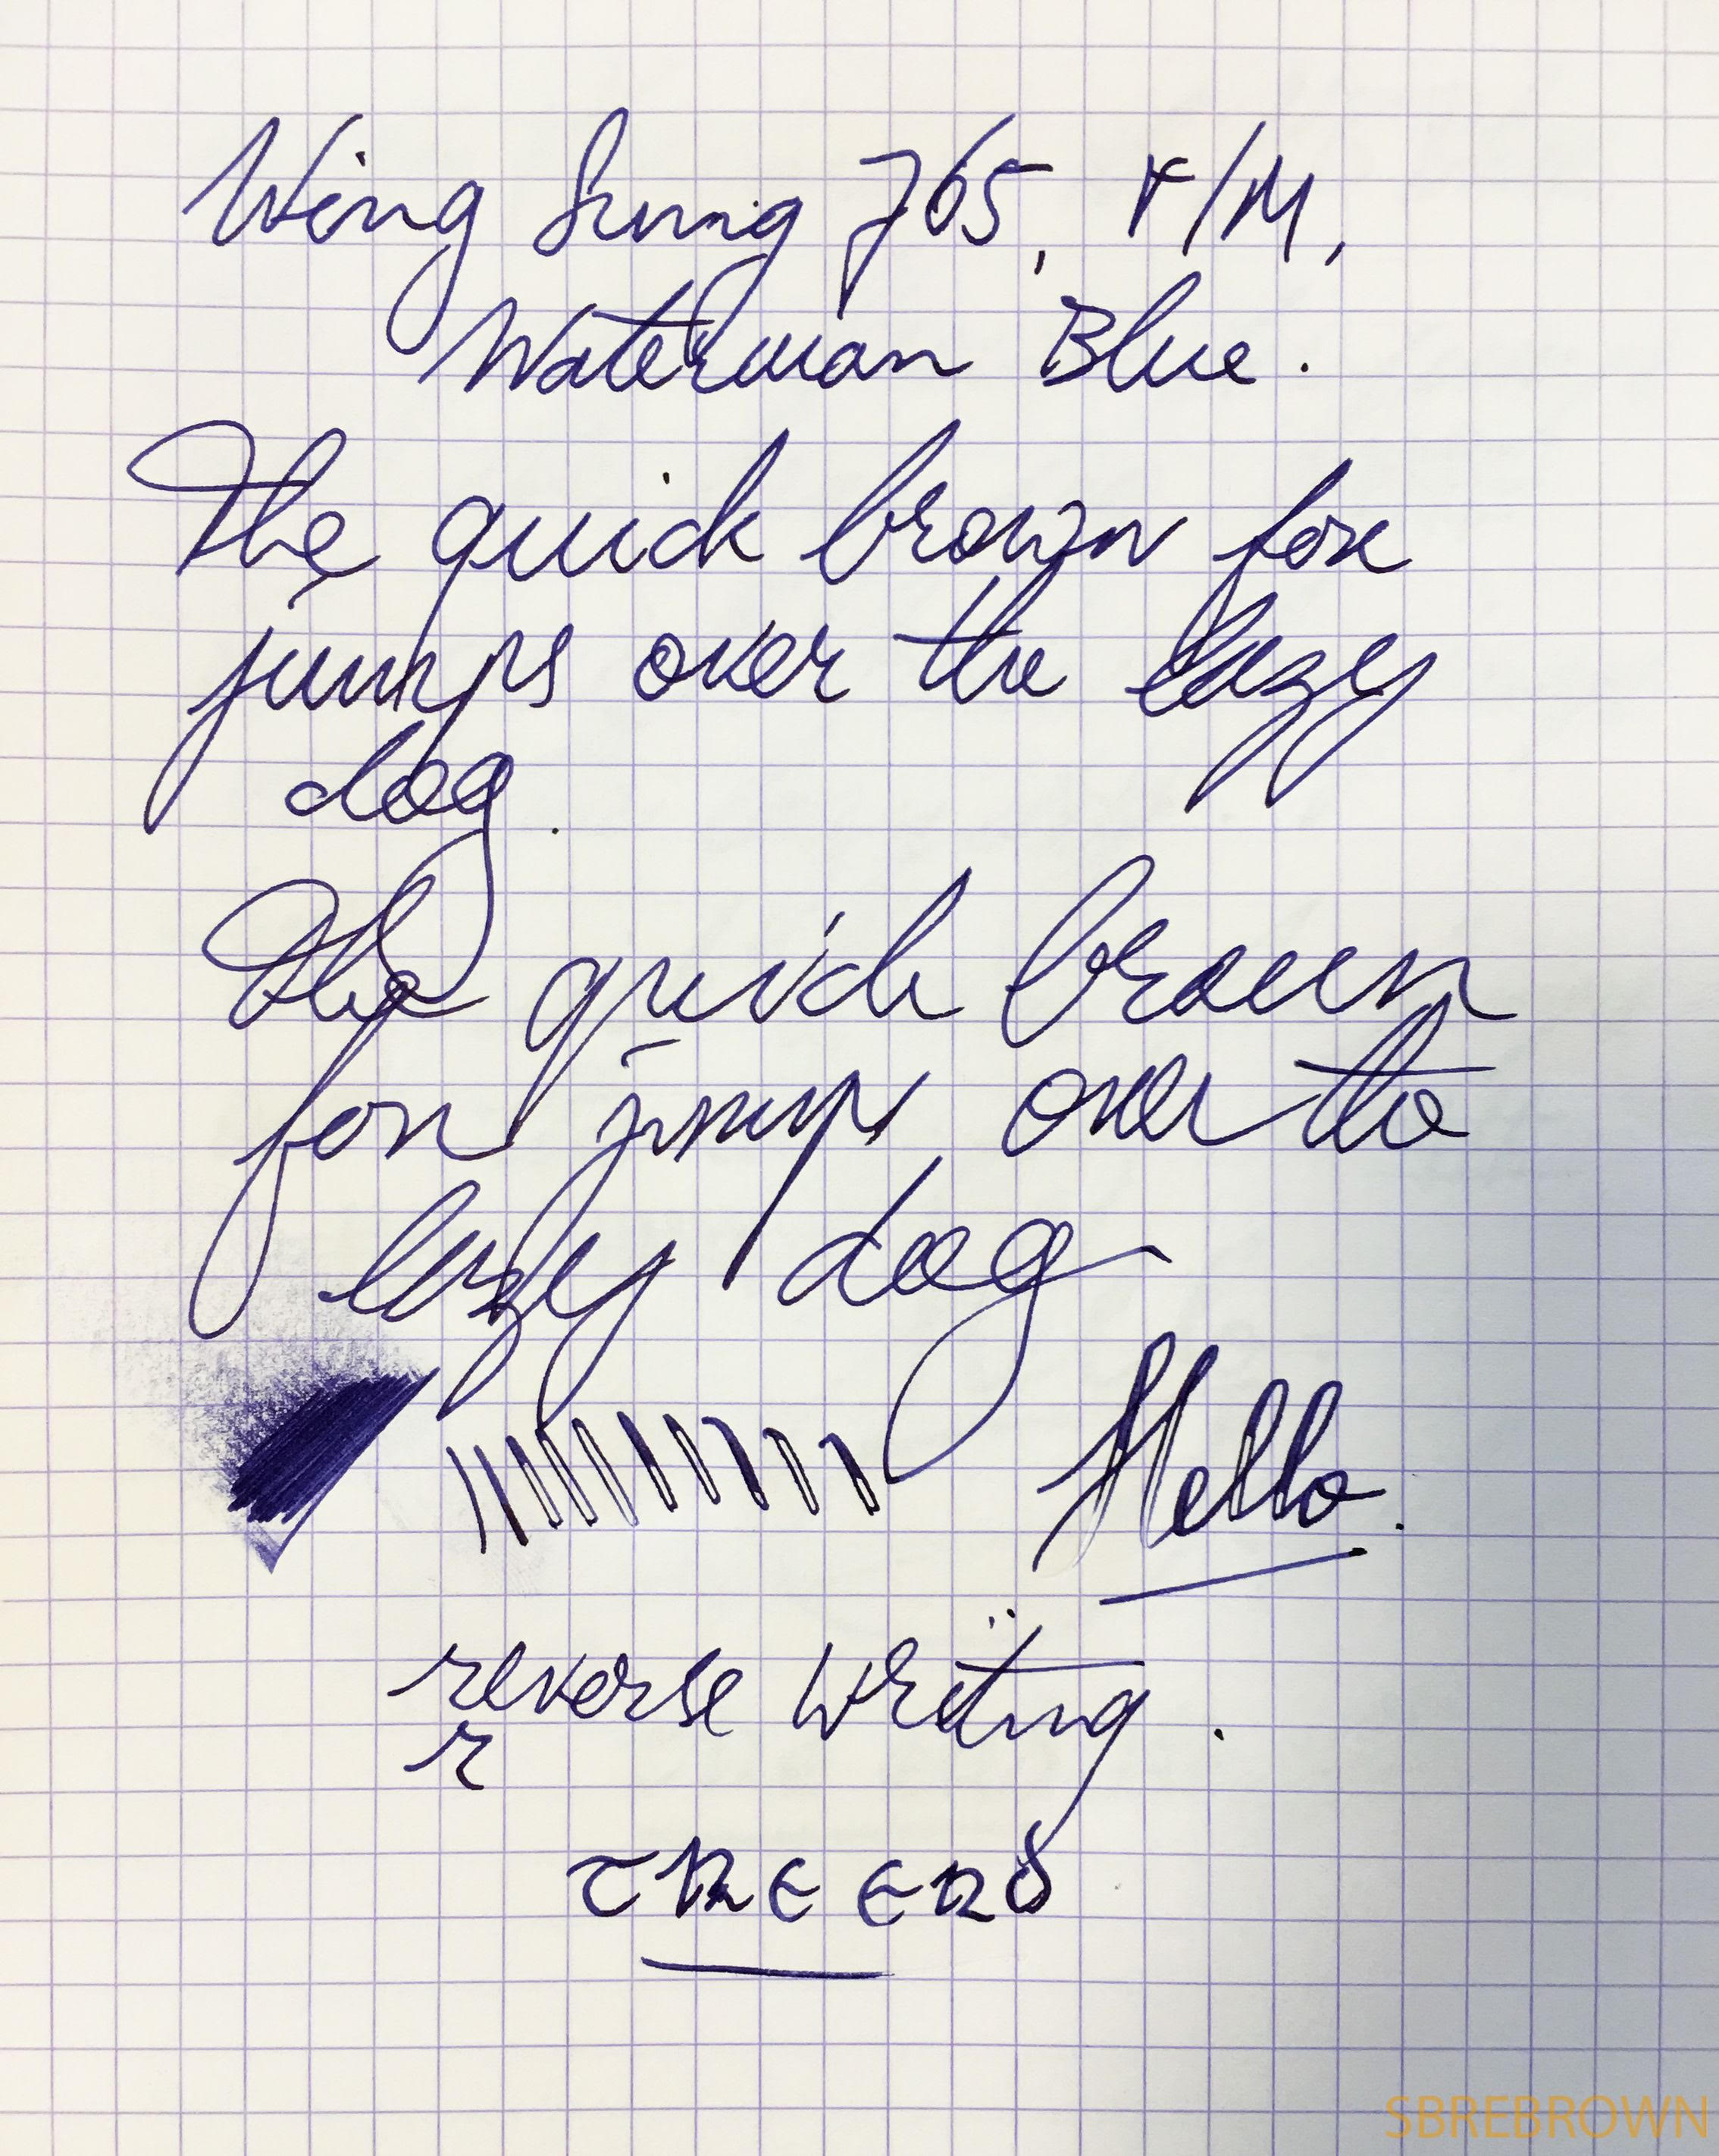 Wing Sung 765, F/M,
Waterman Blue.
The quick brown fox
jumps over the lazy
dog.
The quick brown
fox jumps over the
lazy dog
Hello.
reverse writing.
r
SBREBROWN